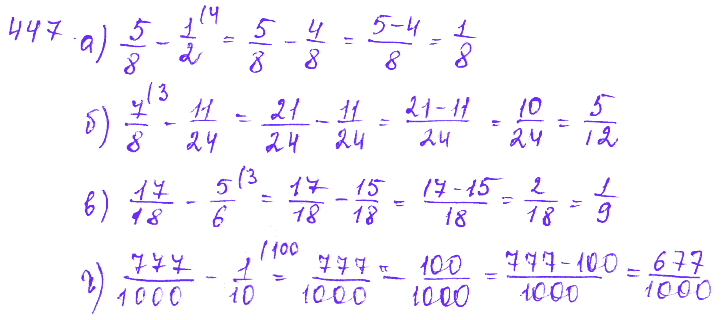 447. а) 5/8 - 1/2 (4 = 5/8 - 4/8 = 5-4/8 = 1/8
б) 7/8 (3 - 11/24 = 21/24 - 11/24 = 21-11/24 = 10/24 = 5/12
в) 17/18 - 5/6 (3 = 17/18 - 15/18 = 17-15/18 = 2/18 = 1/9
г) 777/1000 - 1/10 (100 = 777/1000 - 100/1000 = 777-100/1000 = 677/1000